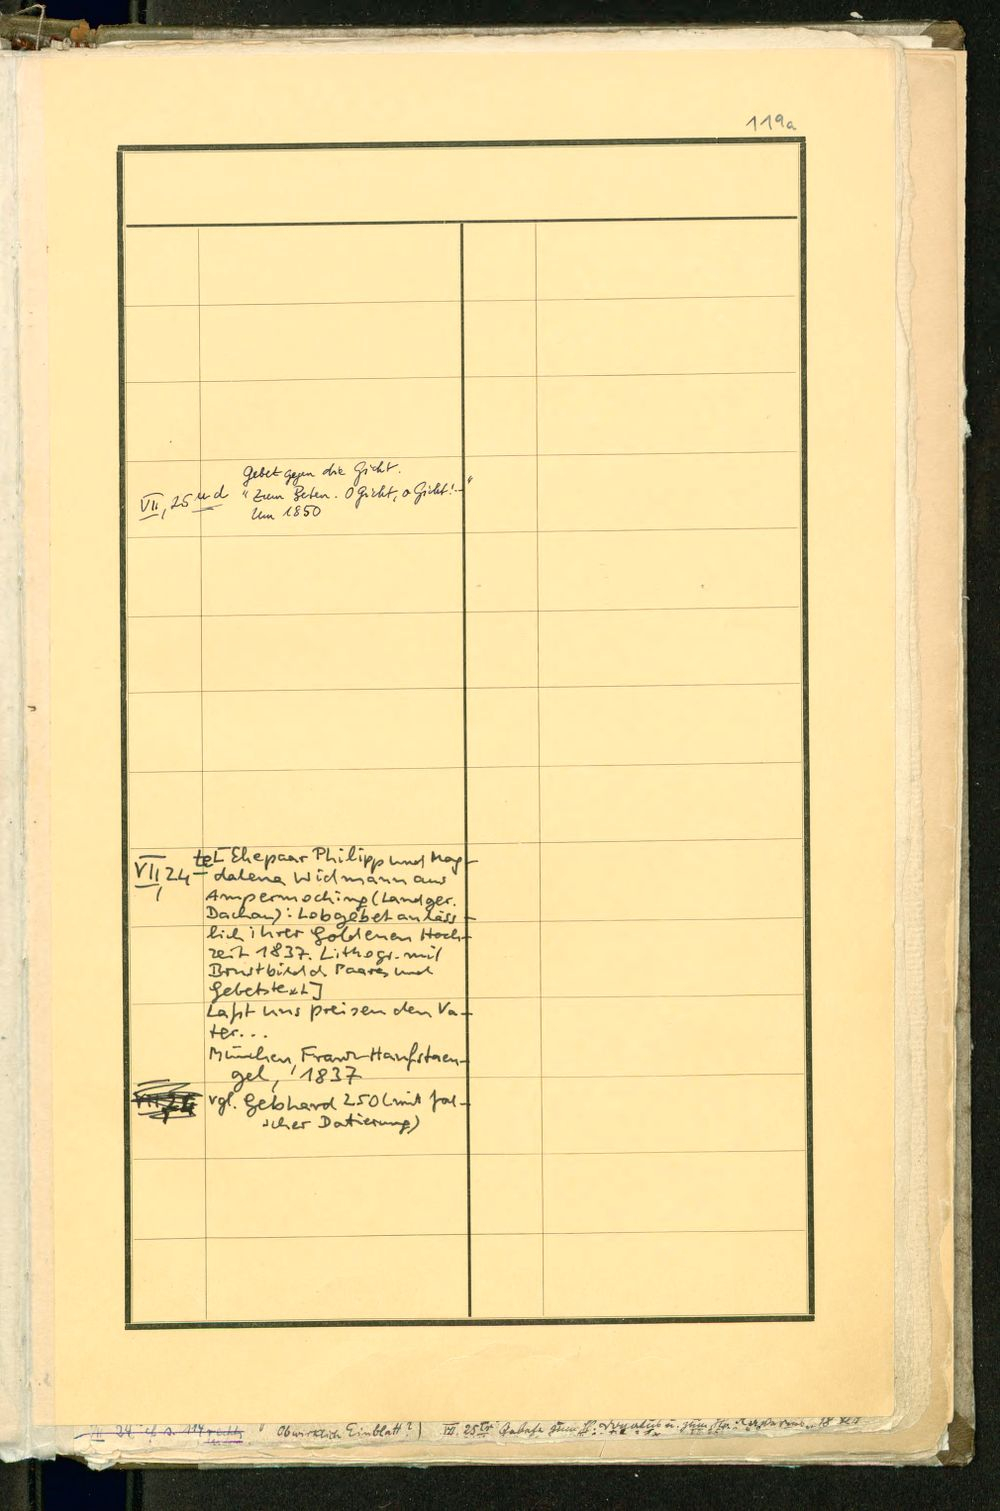 119a
Gebet gegen die Gicht.
VII, 25 ud "Zum Beten. O Gicht, o Gicht!..."
Um 1850
VII, 24 te [Ehepaar Philipp und Mag-
dalena Widmann aus
Ampermoching (Landger.
Dachau): Lobgebet anläss-
lich ihrer Goldenen Hoch-
zeit 1837. Lithogr. mit
Brustbild d. Paares und
Gebetstext]
Laßt uns preisen den Va-
ter...
München, Franz Hanfstaen-
gel, 1837
VII 24 vgl. Gebhard 250 (mit fal-
scher Datierung)
VII 24 cf s. 119 rechts
Ob wirklich Einblatt?)
VII. 25 Gebete zum H. u. zum